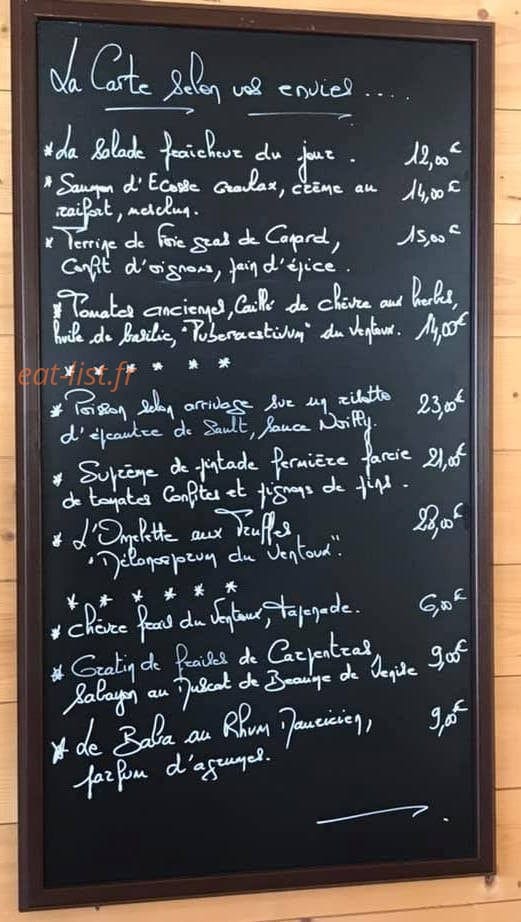 La Carte selon vos envies ....
* La salade fraîcheur du jour . 12,00€
* Saumon d'Ecosse Gravlax, crème au 14,00€
raifort, mesclun.
* Terrine de Foie gras de Canard, 15,00€
Confit d'oignons, pain d'épice .
* Tomates anciennes, Caillé de chèvre aux herbes,
huile de basilic, "Tuberaestivum" du Ventoux. 14,00€
* * * * * *
eat-list.fr
* Poisson selon arrivage sur un risotto 23,00€
d'épeautre de Sault, sauce Noilly.
* Suprême de pintade fermière farcie 21,00€
de tomates Confites et pignons de pins .
* L'Omelette aux Truffes 28,00€
"Mélanosporum du Ventoux".
* * * * * *
* Chèvre frais du Ventoux, tapenade. 6,00€
* Gratin de fraises de Carpentras, 9,00€
Sabayon au Muscat de Beaume de Venise
* Le Baba au Rhum Mauricien, 9,00€
parfum d'agrumes.